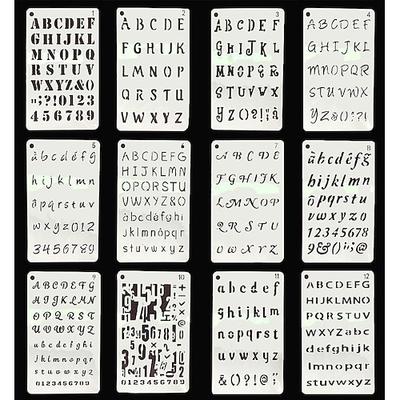 1
ABCDEF
GHIJKL
MNOPQ
RSTUV
WXYZ&0
"";?!0123
456789
2
ABCDE
FGHIJK
LMNOP
QRSTU
VWXYZ
3
ABCDEF
GHIJKL
MNOPQ
RSTUV
WXYZ
4
ABCDEF
GHIJKL
MNOPQ
RSTUV
WXYZ
5
àbcdéfg
hijklmn
ôpqrstuv
wxyz012
3456789
6
ABCDEFG
HIJKLMN
OPQRSTU
VWXYZ&0
àbcdéfghi
jklmnôpq
rstuvwxyz
7
ABCDE
FGHIJK
LMNOP
QRSTU
VWXYZ
8
àbcdéfg
hijklmn
ôpqrstu
vwxyz0
12345678
9&()!;@
9
ABCDEFG
HIJKLMN
OPQRSTU
VWXYZ
abcdefghi
jklmnopqr
stuvwxyz
0123456789
10
0123456789
11
abcdef
ghijklm
nopqrst
uvwxyz
&()?!;@
12
ABCDEFG
HIJKLMN
OPQRSTU
VWXYZabc
defghijk
lmnopqrst
uvwxyz